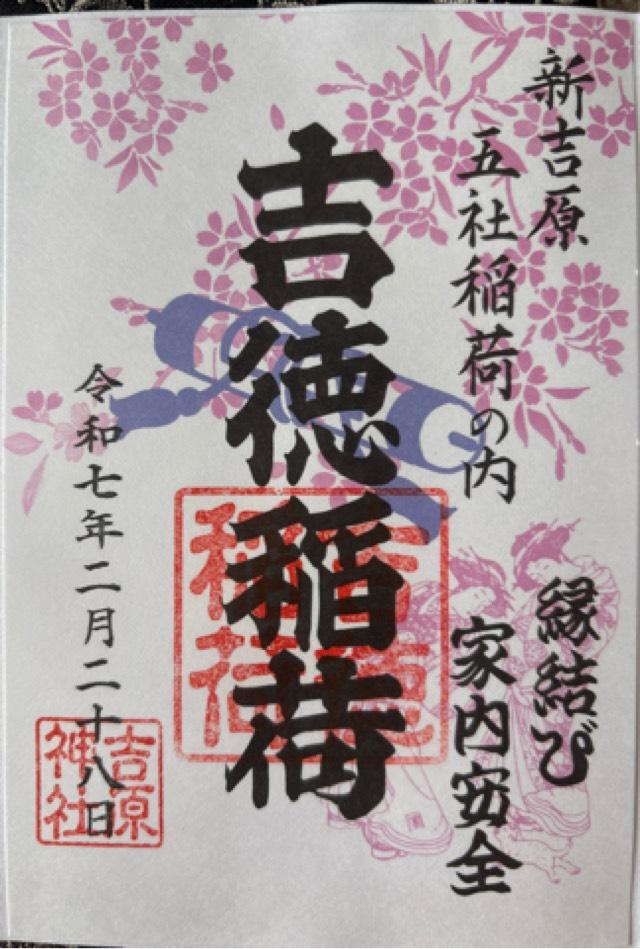 新吉原
五社稲荷の内
縁結び
家内安全
吉徳稲荷
吉徳
稲荷
令和七年二月二十八日
吉原
神社